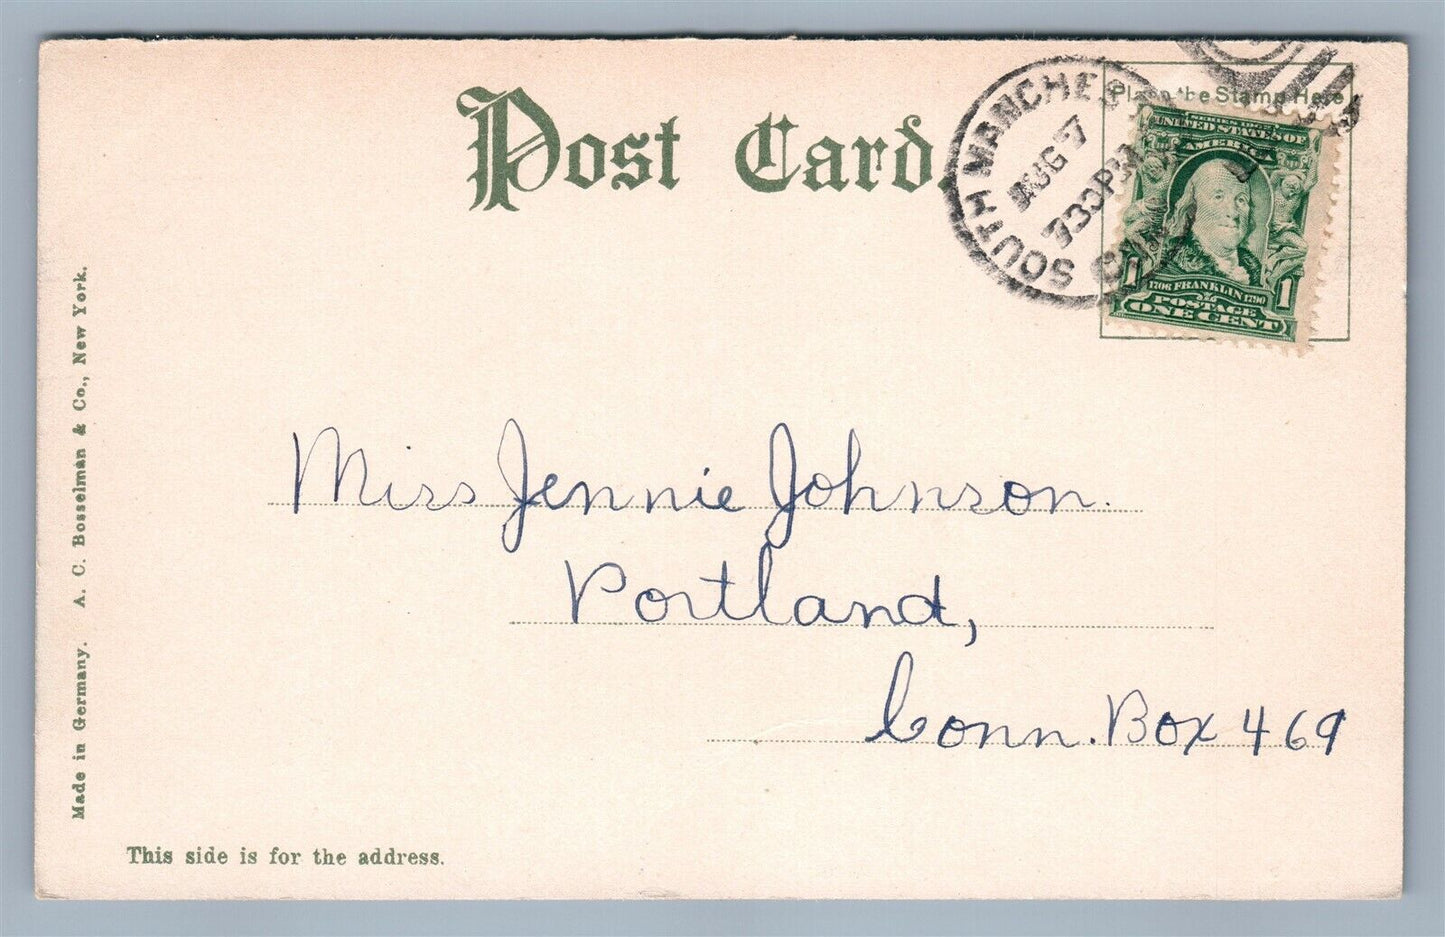 Post Card.
Place the Stamp Here
SOUTH MANCHES
AUG 7
730PM
CONN
SERIES 1902
UNITED STATES OF
AMERICA
1 1
1706 FRANKLIN 1790
POSTAGE
ONE CENT
Miss Jennie Johnson.
Portland,
Conn. Box 469
Made in Germany. A. C. Bosselman & Co., New York.
This side is for the address.